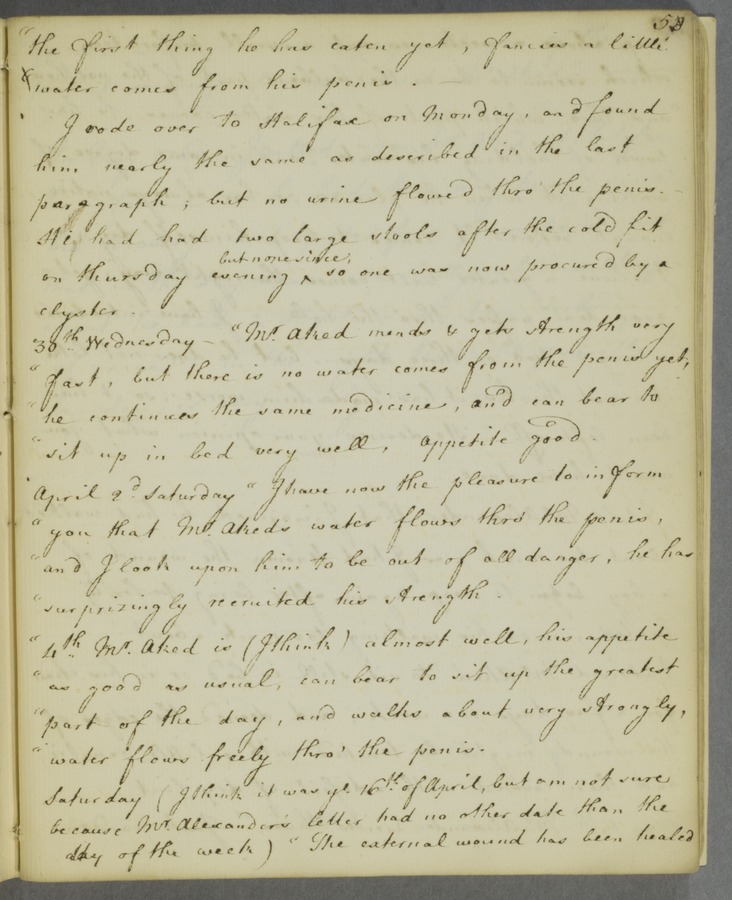 59
"the first thing he has eaten yet, fancies a little
"water comes from his penis. —
I rode over to Halifax on Monday, and found
him nearly the same as described in the last
paragraph; but no urine flowed thro' the penis. —
He had had two large stools after the cold fit
but none since,
on thursday evening ^ so one was now procured by a
clyster.
30th Wednesday — "Mr. Aked mends & gets strength very
"fast, but there is no water comes from the penis yet,
"he continues the same medicines, and can bear to
"sit up in bed very well, appetite good.
April 2d Saturday "I have now the pleasure to inform
"you that Mr. Akeds water flows thro' the penis,
"and I look upon him to be out of all danger, he has
"surprizingly recruited his strength.
"4th. Mr. Aked is (I think) almost well, his appetite
"as good as usual, can bear to sit up the greatest
"part of the day, and walks about very strongly,
"water flows freely thro' the penis.
Saturday (I think it was ye 16th of April, but am not sure
because Mr. Alexander's letter had no other date than the
day of the week) "The external wound has been healed